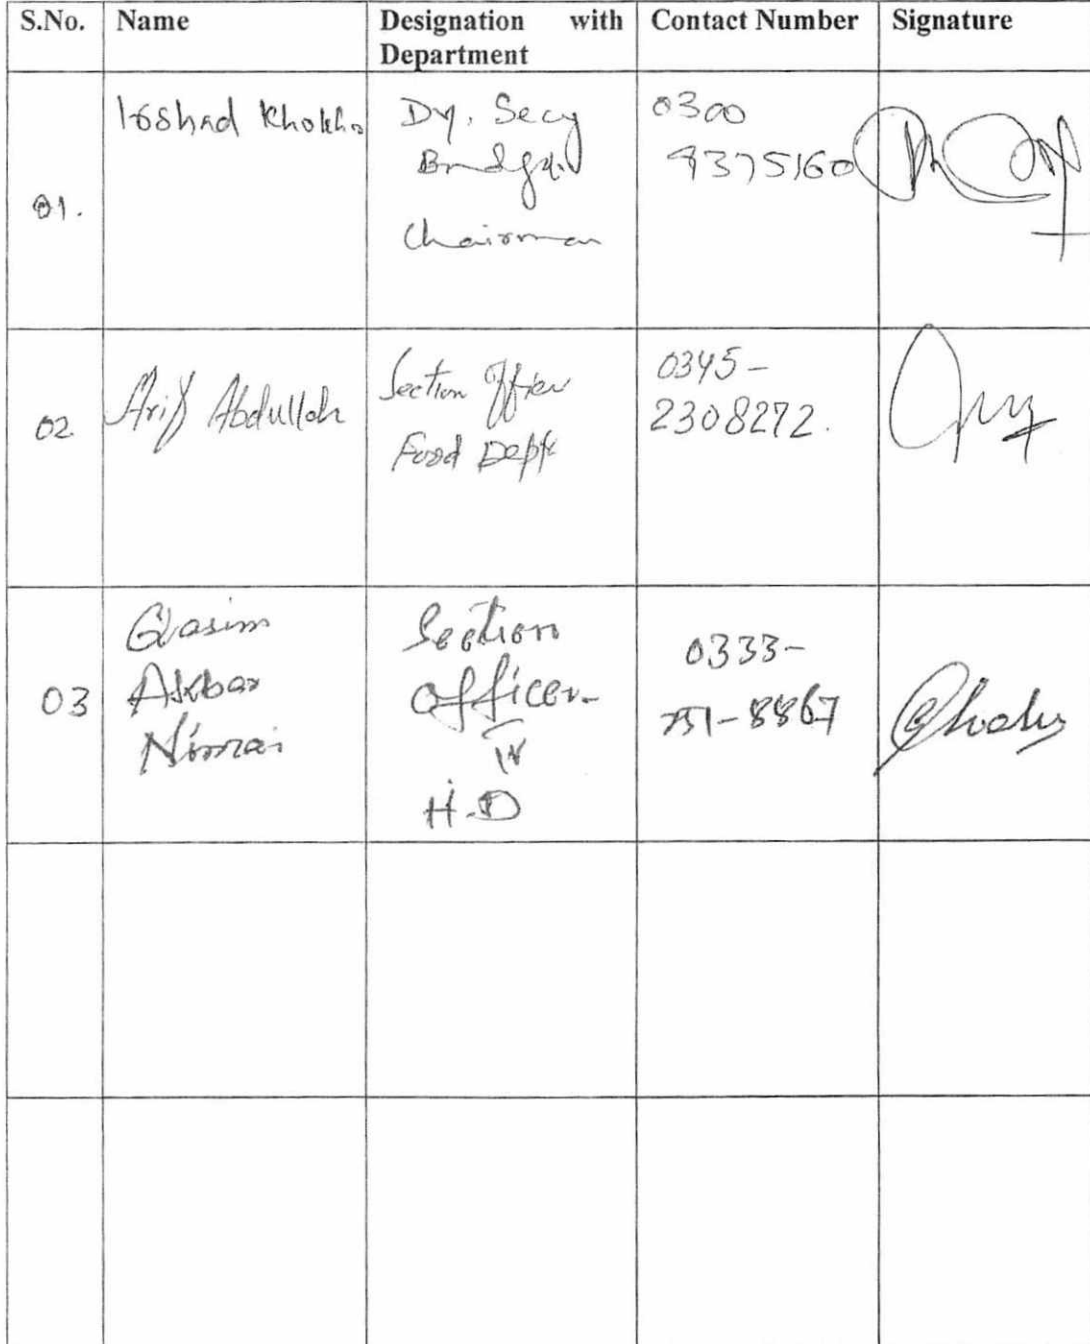 S.No. Name Designation with Department Contact Number Signature
01.
Irshad Khokha
Dy. Secy
Chairman
0300
9375160
02
Arif Abdullah
Section Officer
Food Deptt
0345-
2308272.
03
Qasim
Akbar
Nimai
Section
Officer-
IV
H.D
0333-
751-8867